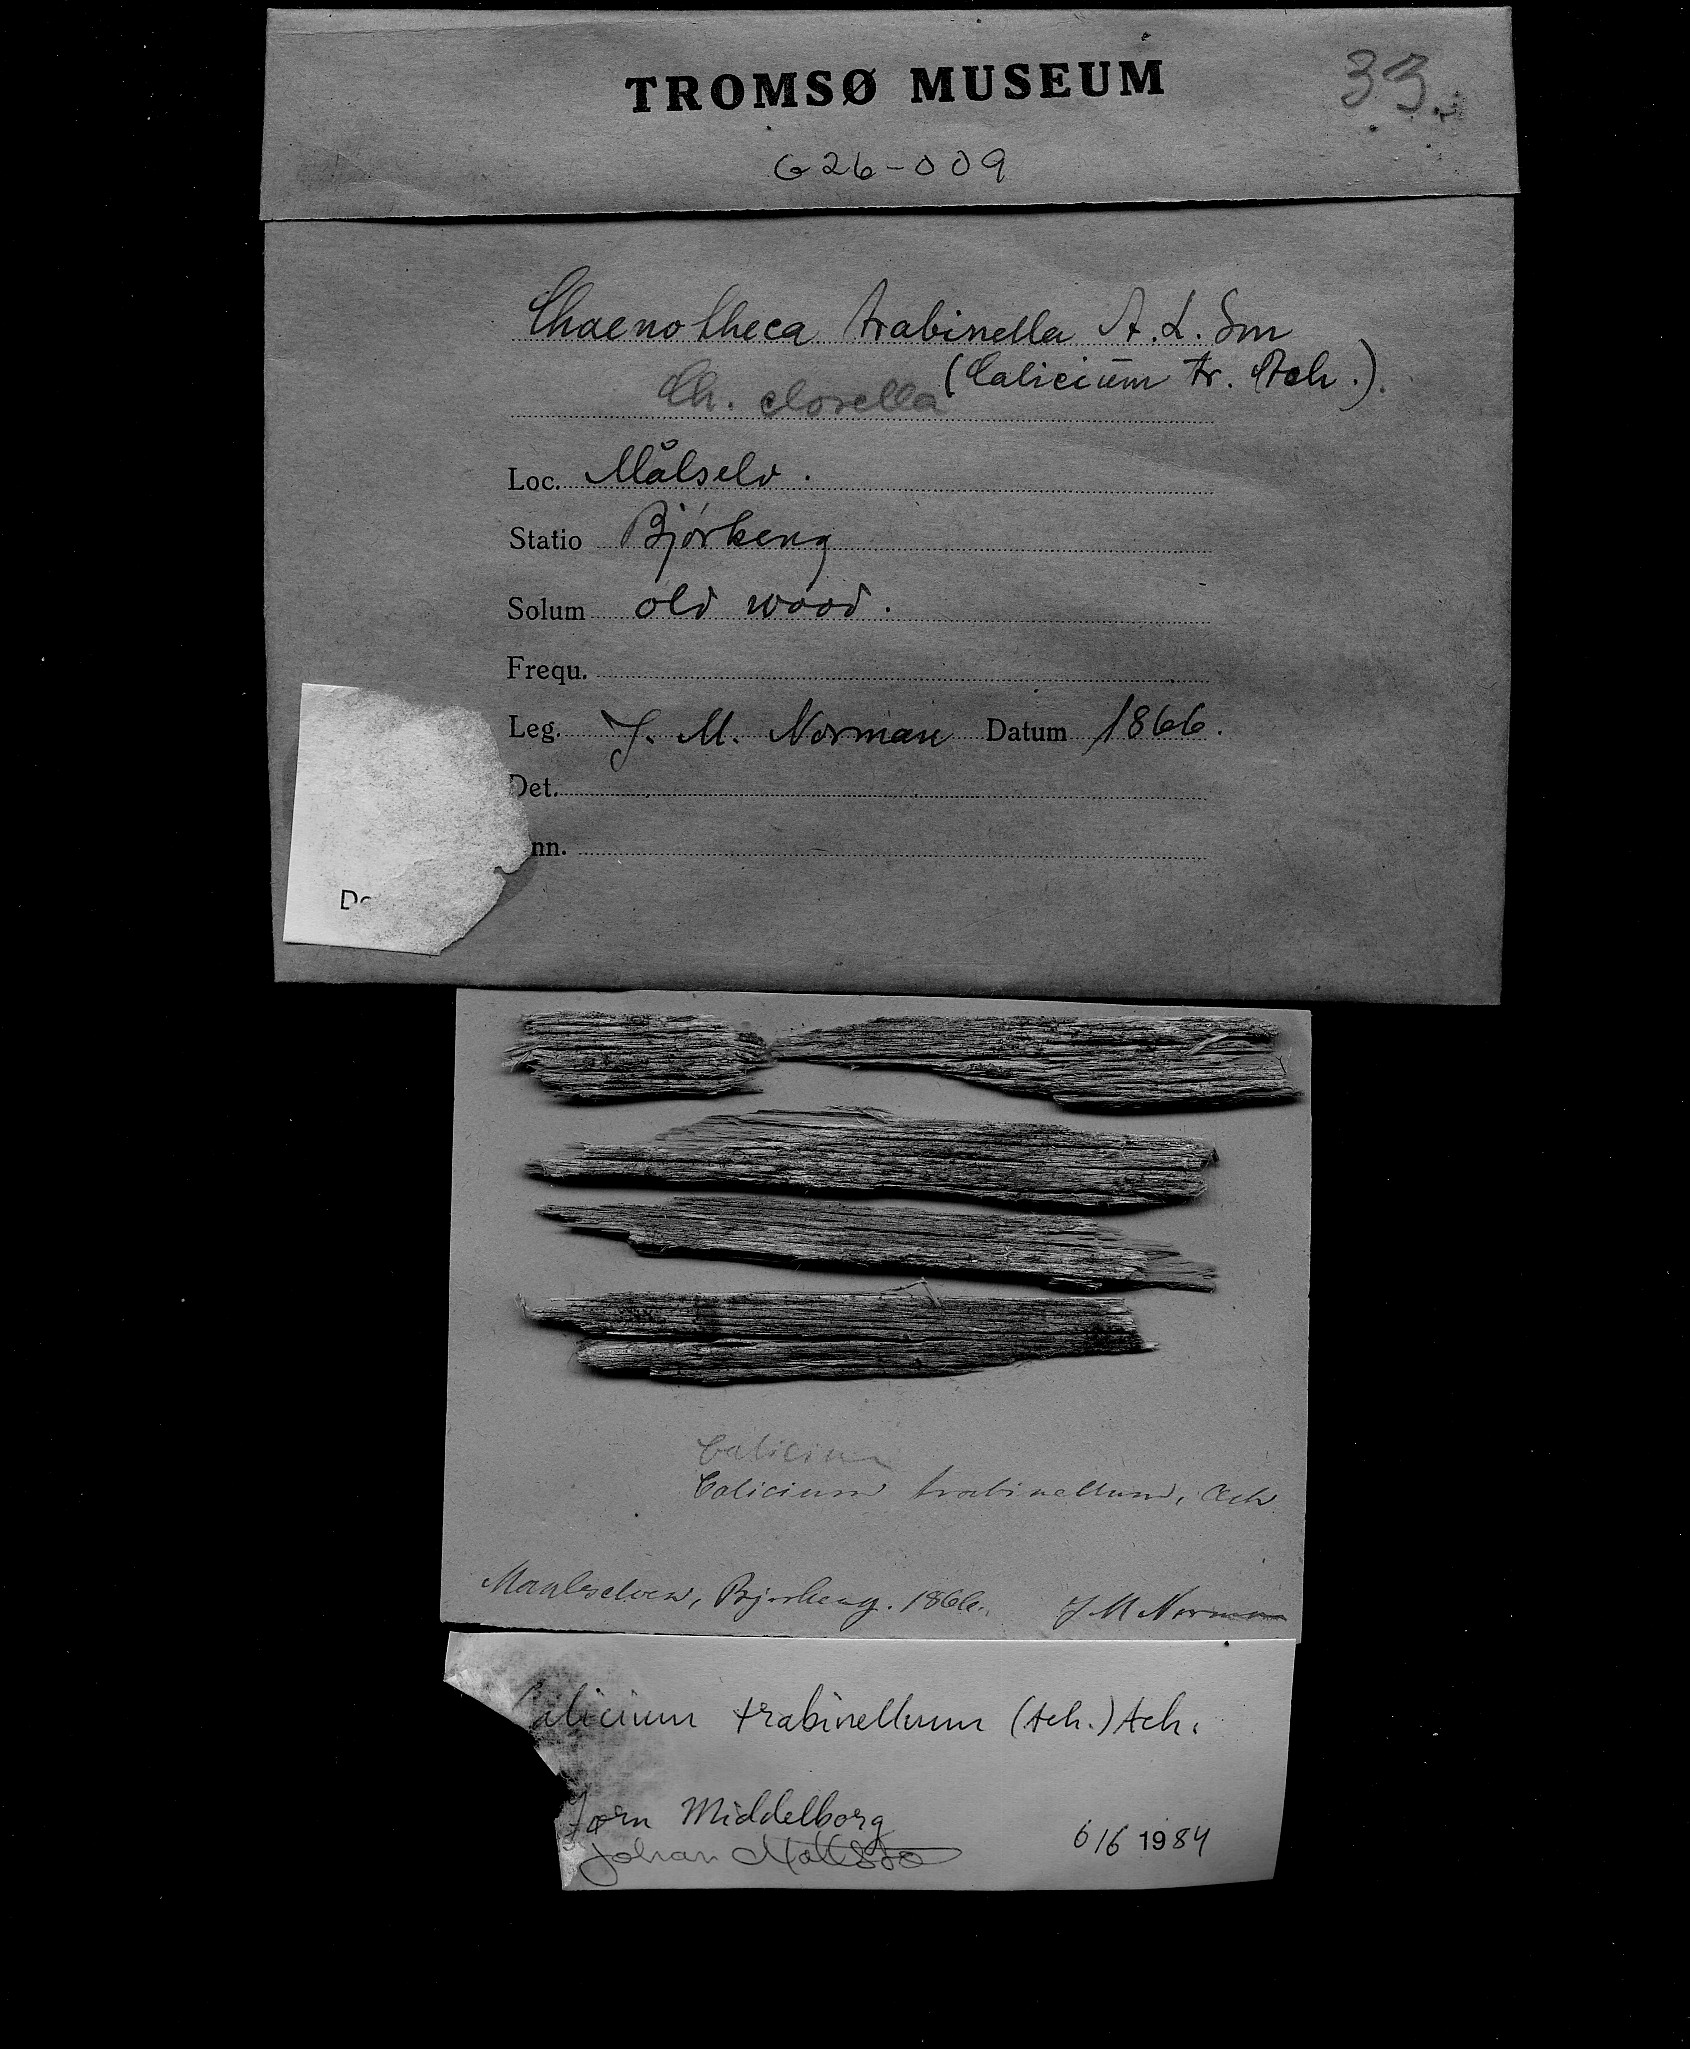 TROMSØ MUSEUM
33.
G26-009
Chaenotheca trabinella A. L. Sm
(Calicium tr. Ach.).
Ch.
Loc. Målselv.
Statio Bjørkeng
Solum old wood.
Frequ.
Leg. J. M. Norman Datum 1866.
Det.
nn.
De
Calicium
Calicium trabinellum, Ach
Maalselven, Bjørkeng. 1866. J M Norman
alicium trabinellum (Ach.) Ach.
Jørn Middelborg
Johan Mattsson
6/6 1984